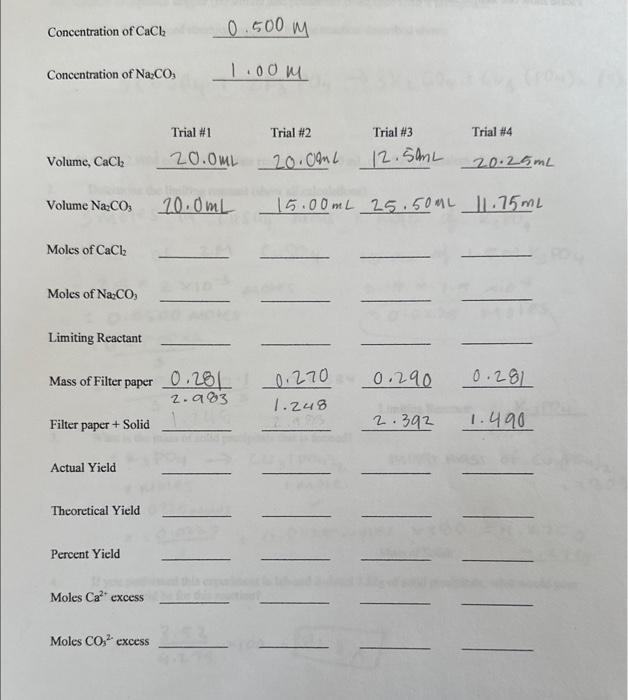 Concentration of CaCl₂ 0.500 M
Concentration of Na₂CO₃ 1.00 M
Trial #1 Trial #2 Trial #3 Trial #4
Volume, CaCl₂ 20.0mL 20.00mL 12.50mL 20.25mL
Volume Na₂CO₃ 20.0mL 15.00mL 25.50mL 11.75mL
Moles of CaCl₂
Moles of Na₂CO₃
Limiting Reactant
Mass of Filter paper 0.281 0.270 0.290 0.281
2.983 1.248
Filter paper + Solid 2.392 1.490
Actual Yield
Theoretical Yield
Percent Yield
Moles Ca²⁺ excess
Moles CO₃²⁻ excess